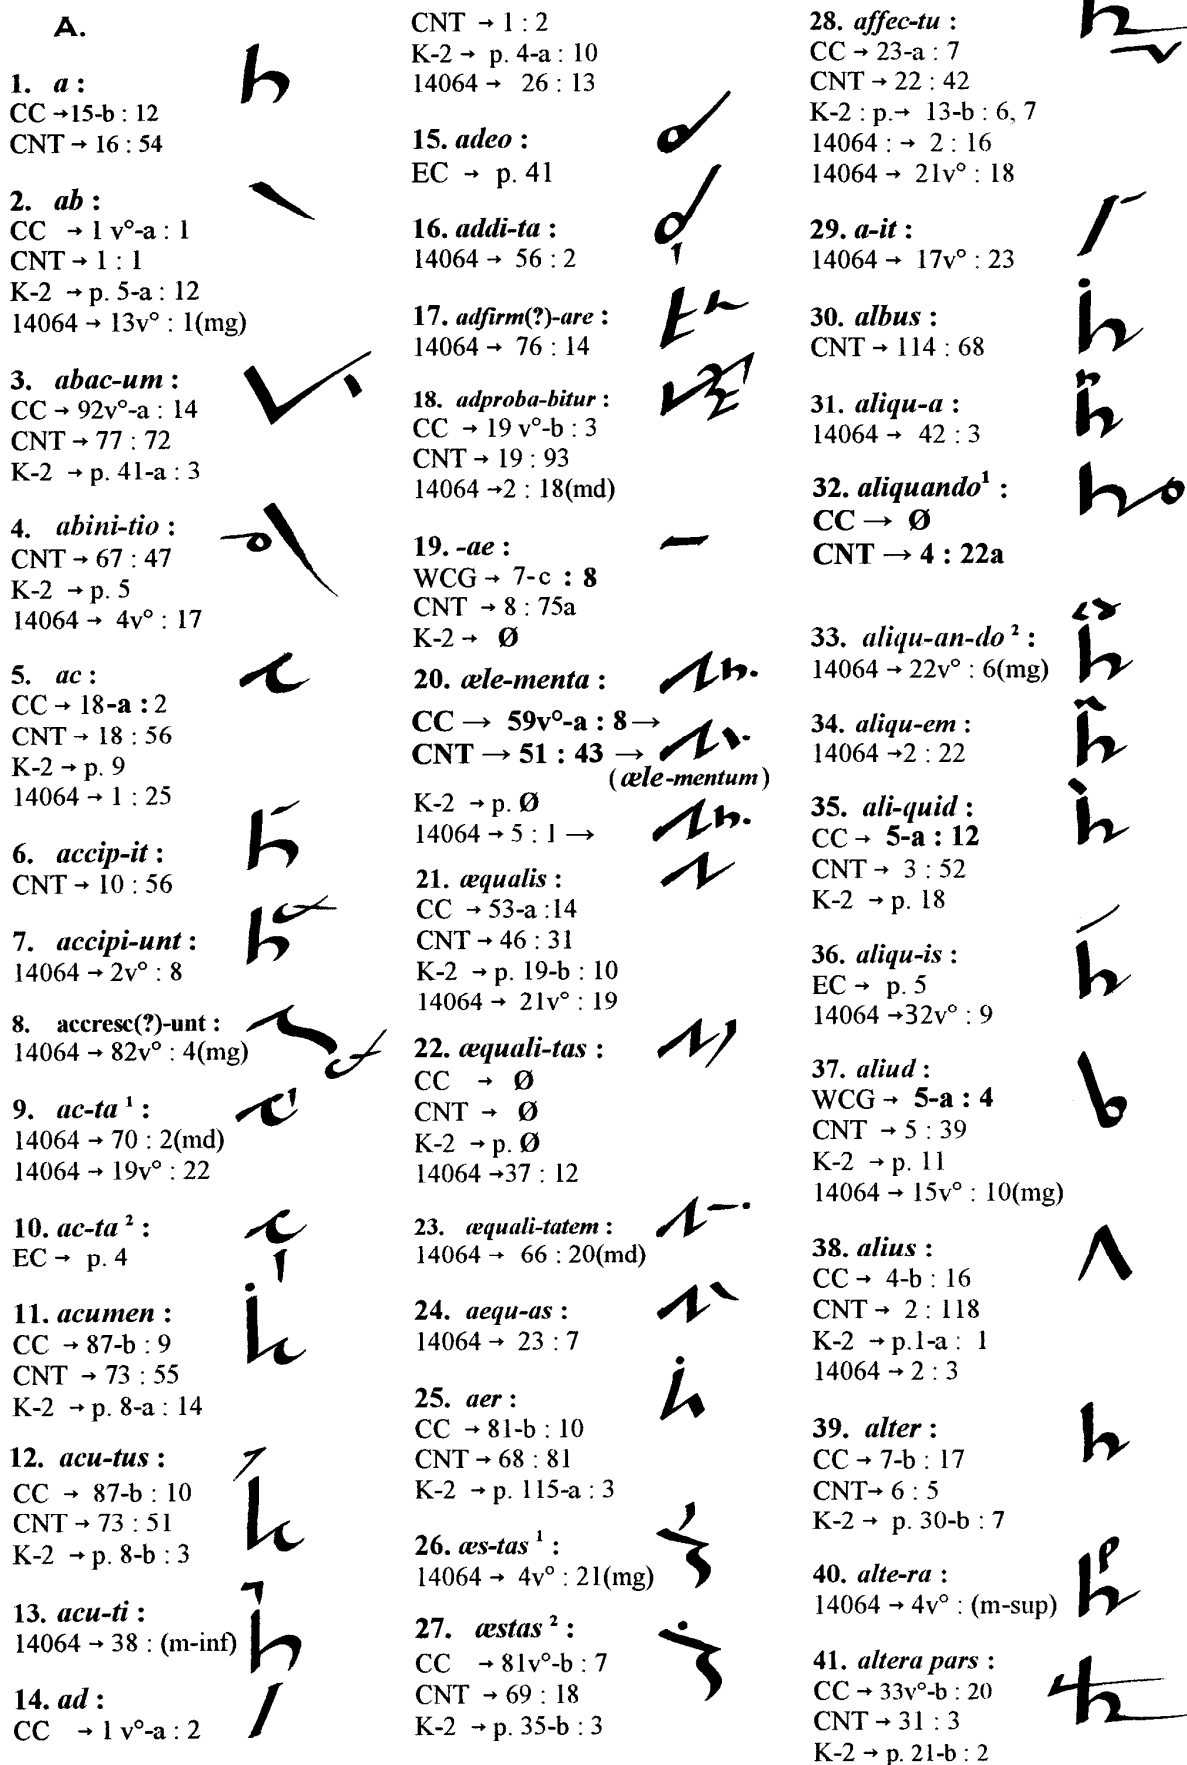 A.
1. a :
CC →15-b : 12
CNT → 16 : 54
2. ab :
CC → 1 v°-a : 1
CNT → 1 : 1
K-2 → p. 5-a : 12
14064 → 13v° : 1(mg)
3. abac-um :
CC → 92v°-a : 14
CNT → 77 : 72
K-2 → p. 41-a : 3
4. abini-tio :
CNT → 67 : 47
K-2 → p. 5
14064 → 4v° : 17
5. ac :
CC → 18-a : 2
CNT → 18 : 56
K-2 → p. 9
14064 → 1 : 25
6. accip-it :
CNT → 10 : 56
7. accipi-unt :
14064 → 2v° : 8
8. accresc(?)-unt :
14064 → 82v° : 4(mg)
9. ac-ta ¹ :
14064 → 70 : 2(md)
14064 → 19v° : 22
10. ac-ta ² :
EC → p. 4
11. acumen :
CC → 87-b : 9
CNT → 73 : 55
K-2 → p. 8-a : 14
12. acu-tus :
CC → 87-b : 10
CNT → 73 : 51
K-2 → p. 8-b : 3
13. acu-ti :
14064 → 38 : (m-inf)
14. ad :
CC → 1 v°-a : 2
CNT → 1 : 2
K-2 → p. 4-a : 10
14064 → 26 : 13
15. adeo :
EC → p. 41
16. addi-ta :
14064 → 56 : 2
17. adfirm(?)-are :
14064 → 76 : 14
18. adproba-bitur :
CC → 19 v°-b : 3
CNT → 19 : 93
14064 →2 : 18(md)
19. -ae :
WCG → 7-c : 8
CNT → 8 : 75a
K-2 → Ø
20. æle-menta :
CC → 59v°-a : 8 →
CNT → 51 : 43 →
(æle-mentum)
K-2 → p. Ø
14064 → 5 : 1 →
21. æqualis :
CC → 53-a :14
CNT → 46 : 31
K-2 → p. 19-b : 10
14064 → 21v° : 19
22. æquali-tas :
CC → Ø
CNT → Ø
K-2 → p. Ø
14064 →37 : 12
23. æquali-tatem :
14064 → 66 : 20(md)
24. aequ-as :
14064 → 23 : 7
25. aer :
CC → 81-b : 10
CNT → 68 : 81
K-2 → p. 115-a : 3
26. æs-tas ¹ :
14064 → 4v° : 21(mg)
27. æstas ² :
CC → 81v°-b : 7
CNT → 69 : 18
K-2 → p. 35-b : 3
28. affec-tu :
CC → 23-a : 7
CNT → 22 : 42
K-2 : p.→ 13-b : 6, 7
14064 : → 2 : 16
14064 → 21v° : 18
29. a-it :
14064 → 17v° : 23
30. albus :
CNT → 114 : 68
31. aliqu-a :
14064 → 42 : 3
32. aliquando¹ :
CC → Ø
CNT → 4 : 22a
33. aliqu-an-do ² :
14064 → 22v° : 6(mg)
34. aliqu-em :
14064 →2 : 22
35. ali-quid :
CC → 5-a : 12
CNT → 3 : 52
K-2 → p. 18
36. aliqu-is :
EC → p. 5
14064 →32v° : 9
37. aliud :
WCG → 5-a : 4
CNT → 5 : 39
K-2 → p. 11
14064 → 15v° : 10(mg)
38. alius :
CC → 4-b : 16
CNT → 2 : 118
K-2 → p.1-a : 1
14064 → 2 : 3
39. alter :
CC → 7-b : 17
CNT→ 6 : 5
K-2 → p. 30-b : 7
40. alte-ra :
14064 → 4v° : (m-sup)
41. altera pars :
CC → 33v°-b : 20
CNT → 31 : 3
K-2 → p. 21-b : 2